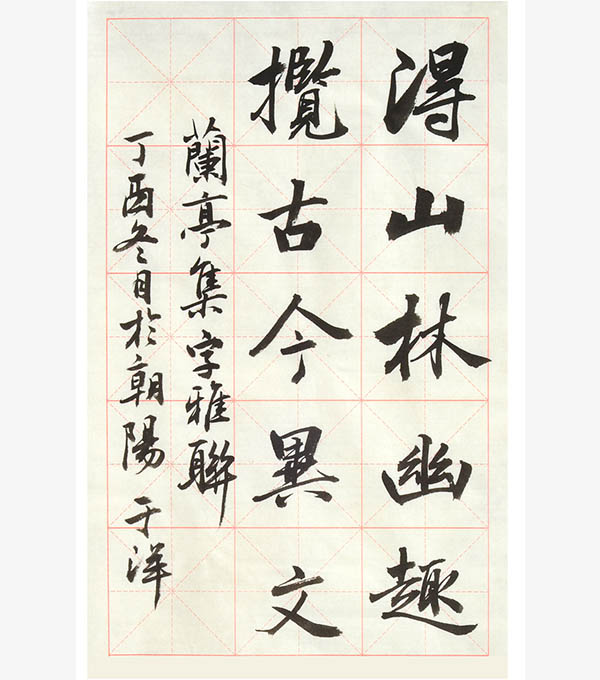 淂山林幽趣
攬古今異文
蘭亭集字雅聯
丁酉冬月於朝陽 于洋